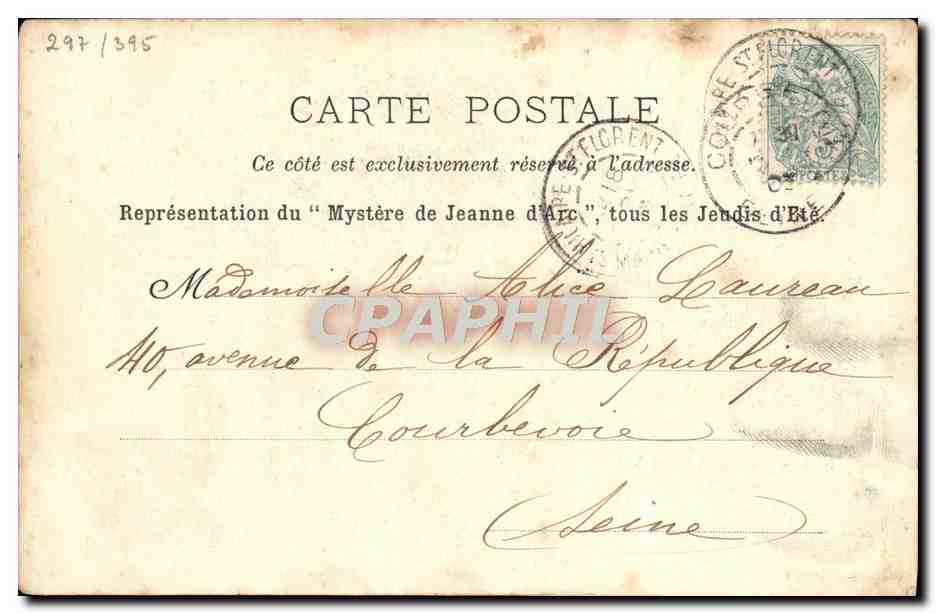 297/395
CARTE POSTALE
Ce côté est exclusivement réservé à l'adresse.
Représentation du “ Mystère de Jeanne d'Arc ”, tous les Jeudis d'Eté.
Mademoiselle Alice Laureau
40, avenue de la République
Courbevoie
(Seine)
CPAPHIL
ST FLORENT
ST FLORENT
POSTES